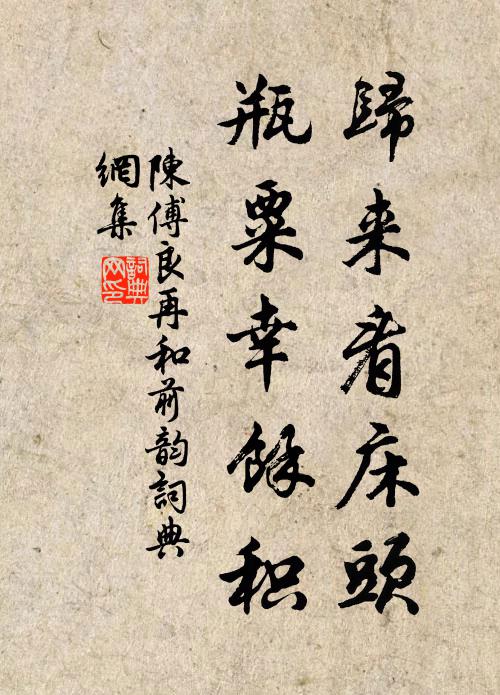 歸来看床頭
瓶粟幸餘积
陳傅良再和前韵詞典
網集
詞典
网印